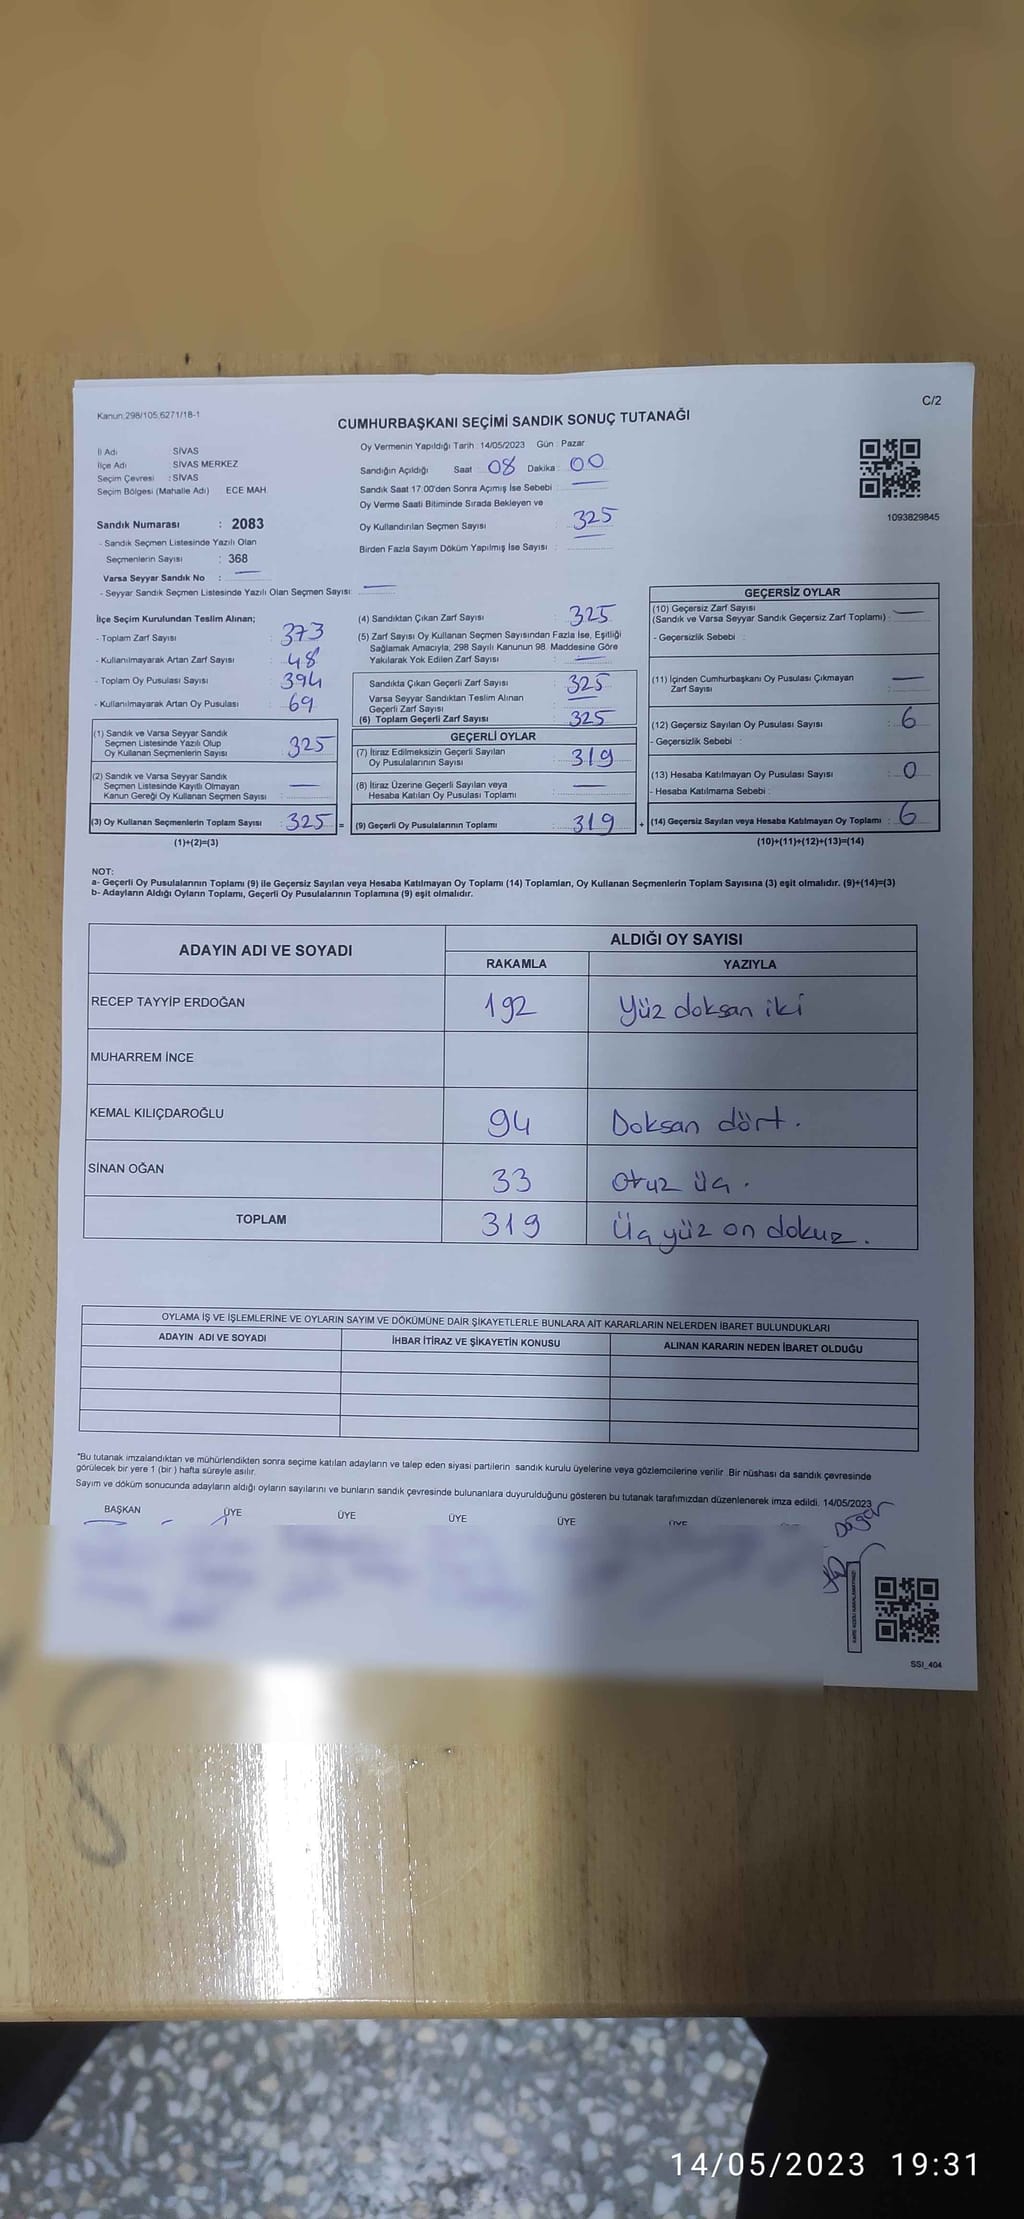 Kanun:298/105,6271/18-1
C/2
CUMHURBAŞKANI SEÇİMİ SANDIK SONUÇ TUTANAĞI
İl Adı SİVAS
İlçe Adı SİVAS MERKEZ
Seçim Çevresi : SİVAS
Seçim Bölgesi (Mahalle Adı) ECE MAH.
Sandık Numarası : 2083
- Sandık Seçmen Listesinde Yazılı Olan
Seçmenlerin Sayısı : 368
Varsa Seyyar Sandık No : —
- Seyyar Sandık Seçmen Listesinde Yazılı Olan Seçmen Sayısı: —
Oy Vermenin Yapıldığı Tarih : 14/05/2023 Gün : Pazar
Sandığın Açıldığı Saat : 08 Dakika : 00
Sandık Saat 17:00'den Sonra Açımış İse Sebebi : —
Oy Verme Saati Bitiminde Sırada Bekleyen ve
Oy Kullandırılan Seçmen Sayısı : 325
Birden Fazla Sayım Döküm Yapılmış İse Sayısı :
1093829845
İlçe Seçim Kurulundan Teslim Alınan;
- Toplam Zarf Sayısı : 373
- Kullanılmayarak Artan Zarf Sayısı : 48
- Toplam Oy Pusulası Sayısı : 394
- Kullanılmayarak Artan Oy Pusulası : 69
(1) Sandık ve Varsa Seyyar Sandık
Seçmen Listesinde Yazılı Olup
Oy Kullanan Seçmenlerin Sayısı : 325
(2) Sandık ve Varsa Seyyar Sandık
Seçmen Listesinde Kayıtlı Olmayan
Kanun Gereği Oy Kullanan Seçmen Sayısı : —
(3) Oy Kullanan Seçmenlerin Toplam Sayısı : 325 =
(1)+(2)=(3)
(4) Sandıktan Çıkan Zarf Sayısı : 325
(5) Zarf Sayısı Oy Kullanan Seçmen Sayısından Fazla İse, Eşitliği
Sağlamak Amacıyla, 298 Sayılı Kanunun 98. Maddesine Göre
Yakılarak Yok Edilen Zarf Sayısı : —
Sandıkta Çıkan Geçerli Zarf Sayısı : 325
Varsa Seyyar Sandıktan Teslim Alınan
Geçerli Zarf Sayısı : —
(6) Toplam Geçerli Zarf Sayısı : 325
GEÇERLİ OYLAR
(7) İtiraz Edilmeksizin Geçerli Sayılan
Oy Pusulalarının Sayısı : 319
(8) İtiraz Üzerine Geçerli Sayılan veya
Hesaba Katılan Oy Pusulası Toplamı : —
(9) Geçerli Oy Pusulalarının Toplamı : 319 +
GEÇERSİZ OYLAR
(10) Geçersiz Zarf Sayısı
(Sandık ve Varsa Seyyar Sandık Geçersiz Zarf Toplamı) : —
- Geçersizlik Sebebi :
(11) İçinden Cumhurbaşkanı Oy Pusulası Çıkmayan
Zarf Sayısı : —
(12) Geçersiz Sayılan Oy Pusulası Sayısı : 6
- Geçersizlik Sebebi :
(13) Hesaba Katılmayan Oy Pusulası Sayısı : 0
- Hesaba Katılmama Sebebi :
(14) Geçersiz Sayılan veya Hesaba Katılmayan Oy Toplamı : 6
(10)+(11)+(12)+(13)=(14)
NOT:
a- Geçerli Oy Pusulalarının Toplamı (9) ile Geçersiz Sayılan veya Hesaba Katılmayan Oy Toplamı (14) Toplamları, Oy Kullanan Seçmenlerin Toplam Sayısına (3) eşit olmalıdır. (9)+(14)=(3)
b- Adayların Aldığı Oyların Toplamı, Geçerli Oy Pusulalarının Toplamına (9) eşit olmalıdır.
ADAYIN ADI VE SOYADI ALDIĞI OY SAYISI
RAKAMLA YAZIYLA
RECEP TAYYİP ERDOĞAN 192 Yüz doksan iki
MUHARREM İNCE
KEMAL KILIÇDAROĞLU 94 Doksan dört.
SİNAN OĞAN 33 otuz üç.
TOPLAM 319 Üç yüz on dokuz.
OYLAMA İŞ VE İŞLEMLERİNE VE OYLARIN SAYIM VE DÖKÜMÜNE DAİR ŞİKAYETLERLE BUNLARA AİT KARARLARIN NELERDEN İBARET BULUNDUKLARI
ADAYIN ADI VE SOYADI İHBAR İTİRAZ VE ŞİKAYETİN KONUSU ALINAN KARARIN NEDEN İBARET OLDUĞU
*Bu tutanak imzalandıktan ve mühürlendikten sonra seçime katılan adayların ve talep eden siyasi partilerin sandık kurulu üyelerine veya gözlemcilerine verilir. Bir nüshası da sandık çevresinde
görülecek bir yere 1 (bir ) hafta süreyle asılır.
Sayım ve döküm sonucunda adayların aldığı oyların sayılarını ve bunların sandık çevresinde bulunanlara duyurulduğunu gösteren bu tutanak tarafımızdan düzenlenerek imza edildi. 14/05/2023
BAŞKAN ÜYE ÜYE ÜYE ÜYE ÜYE
SSI_404
8
14/05/2023 19:31